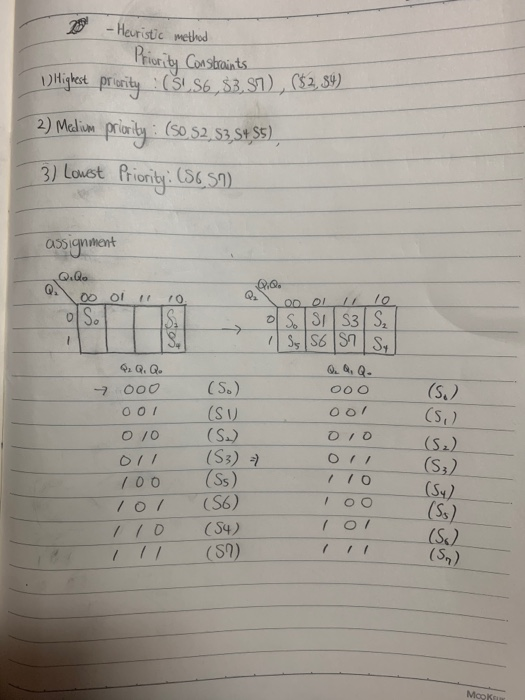 - Heuristic method
Priority Constraints
1) Highest priority : (S1, S6, S3, S7), (S2, S4)
2) Medium priority : (S0, S2, S3, S4, S5),
3) Lowest Priority : (S6, S7)
assignment
Q1Q0 Q1Q0
Q2 00 01 11 10 Q2 00 01 11 10
0 S0 S2 → 0 S0 S1 S3 S2
1 S4 1 S5 S6 S7 S4
Q2 Q1 Q0 Q2 Q1 Q0
→ 000 (S0) 000 (S0)
001 (S1) 001 (S1)
010 (S2) 010 (S2)
011 (S3) ⇒ 011 (S3)
100 (S5) 110 (S4)
101 (S6) 100 (S5)
110 (S4) 101 (S6)
111 (S7) 111 (S7)